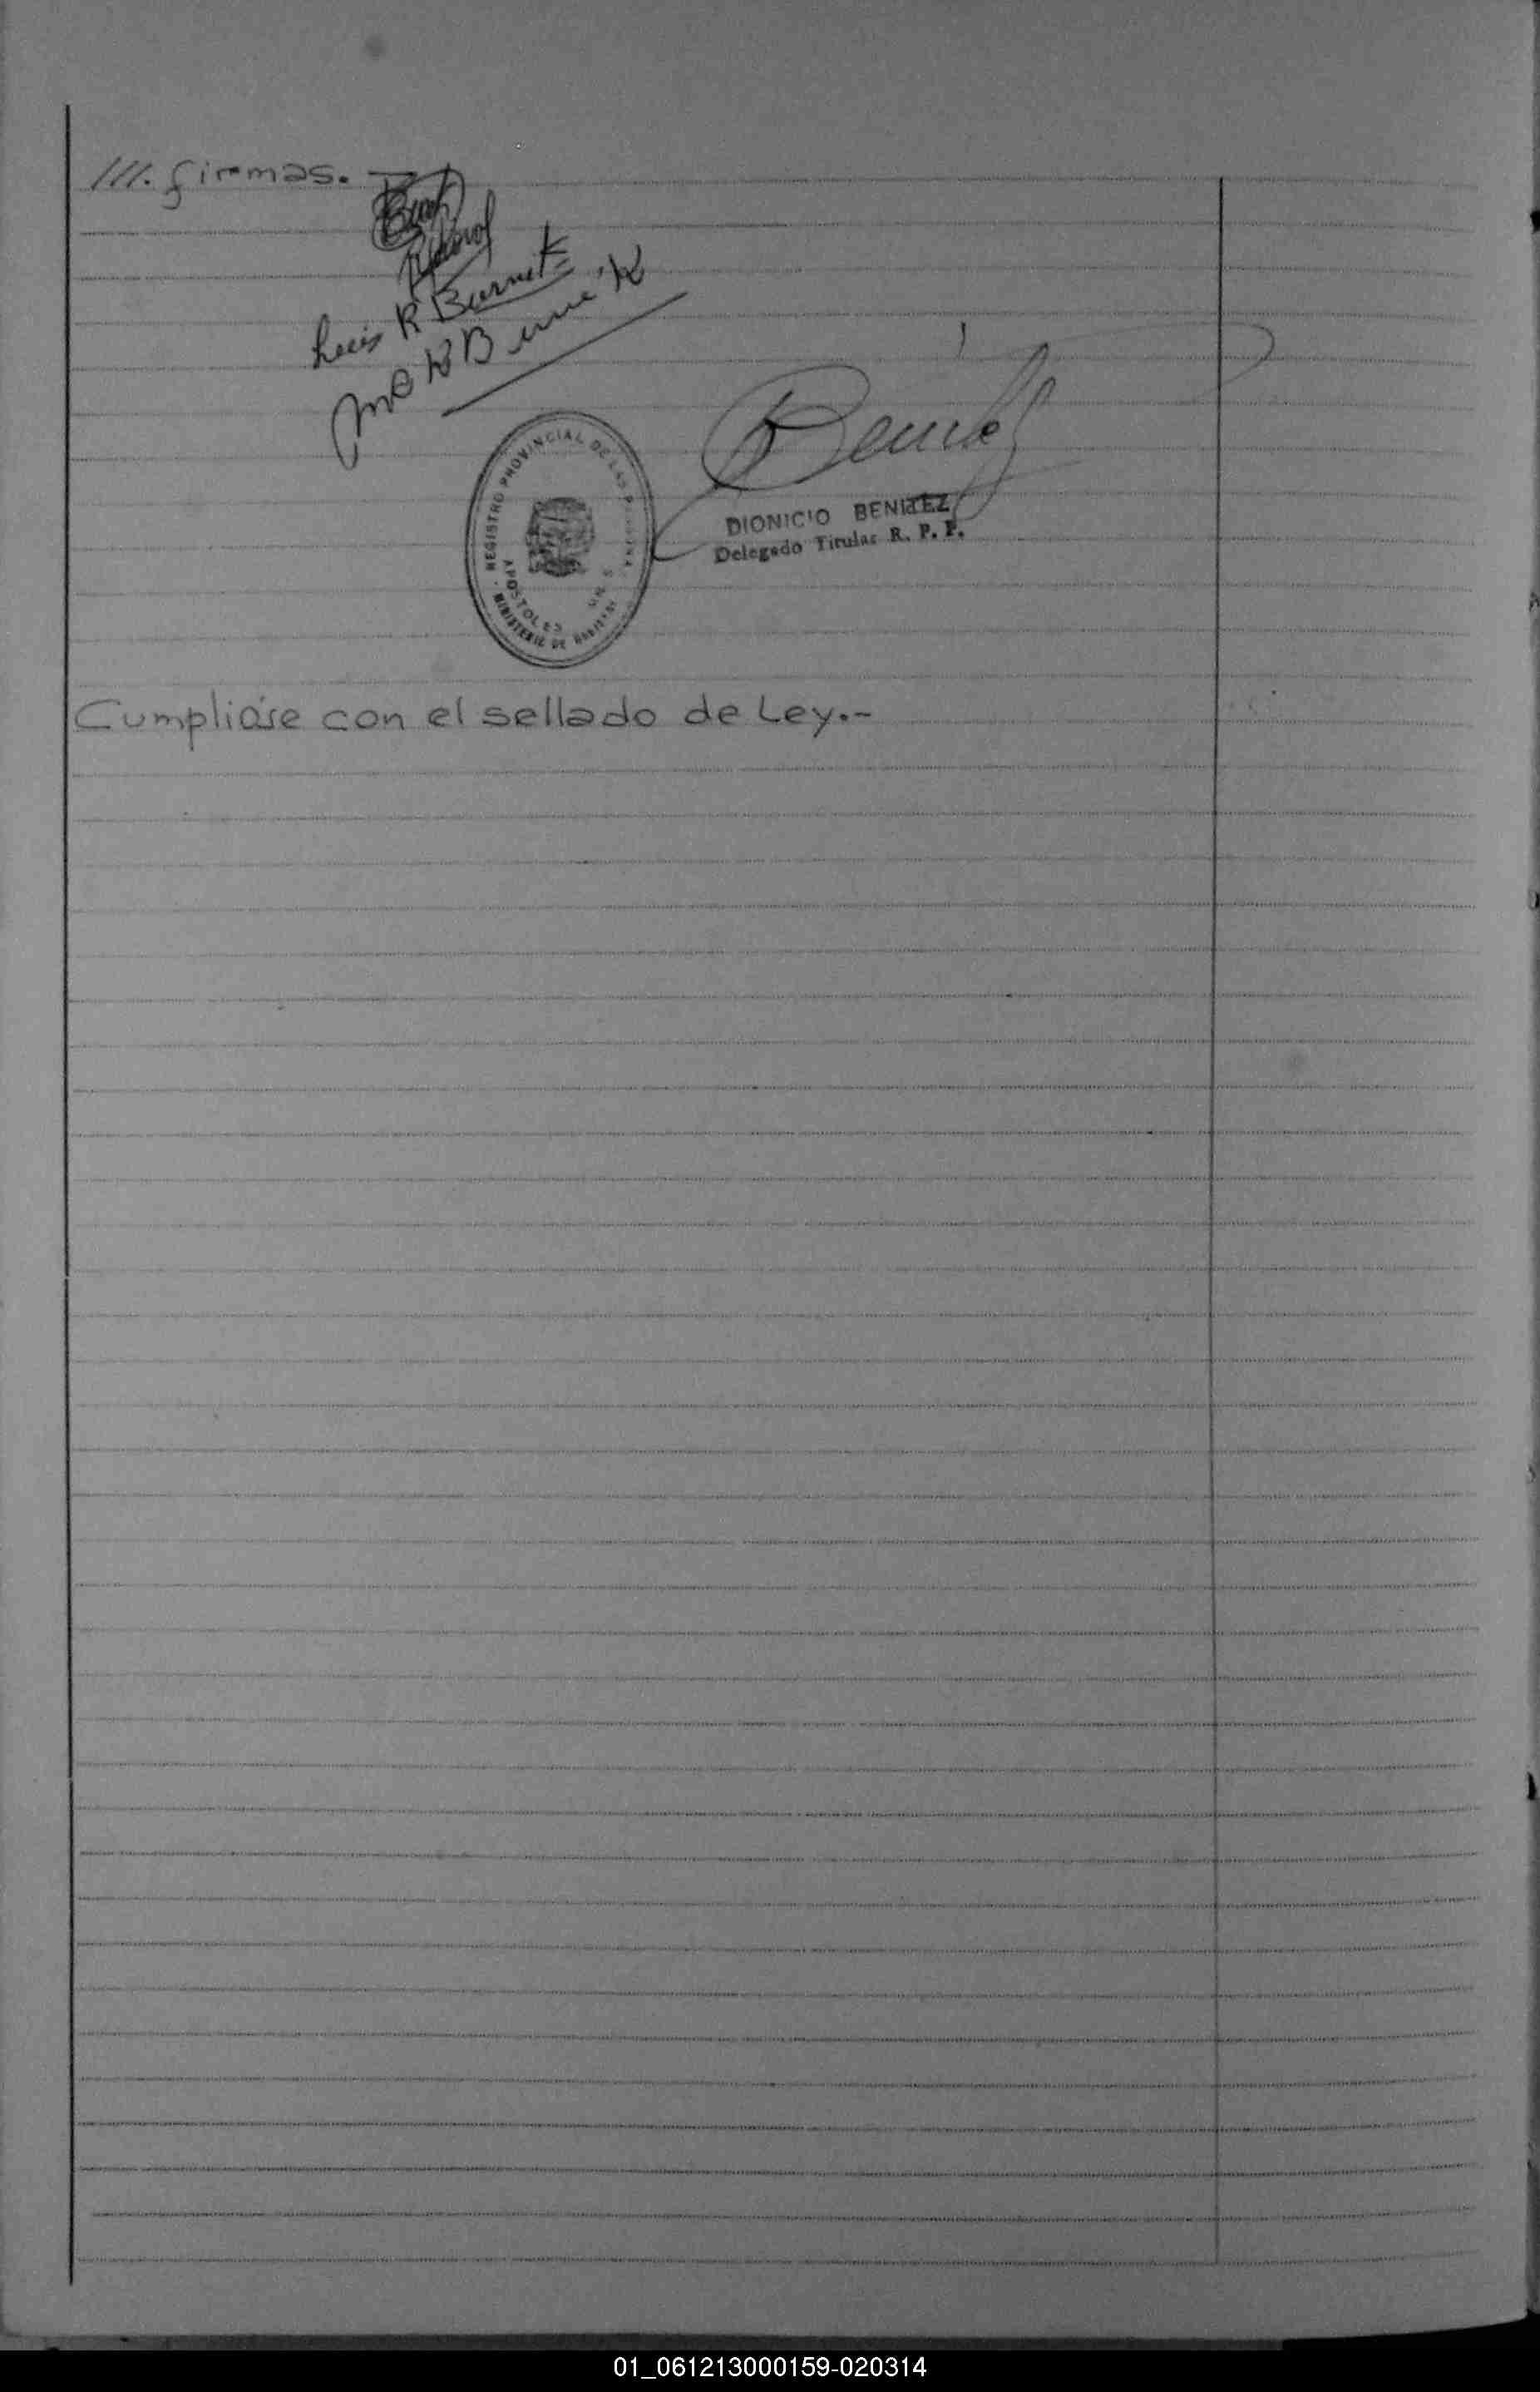 ///. firmas.
Luis R Burnat
Benitez
REGISTRO PROVINCIAL DE LAS PERSONAS
APOSTOLES
MINISTERIO DE
DIONICIO BENITEZ
Delegado Titular R. P. P.
Cumpliose con el sellado de Ley.-
01_061213000159-020314